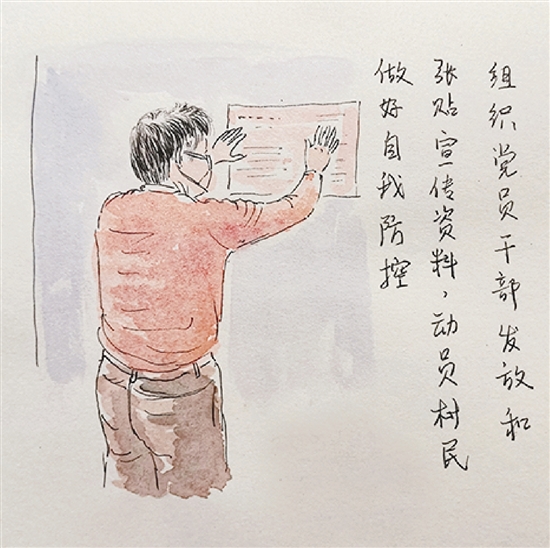 组织党员干部发放和
张贴宣传资料，动员村民
做好自我防控